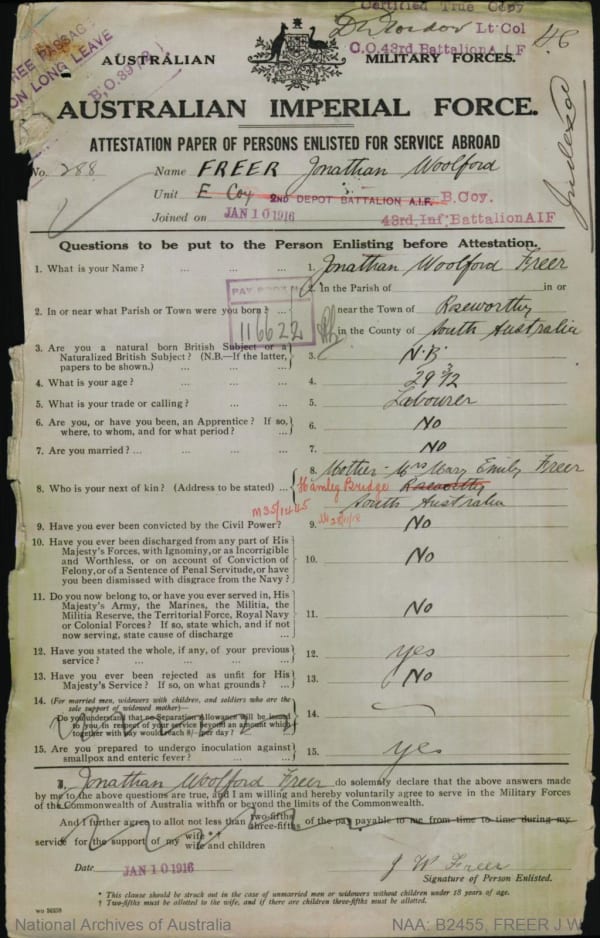 Certified True Copy
Lt Col
C.O. 43rd Battalion A I F
46
FREE PASSAG
ON LONG LEAVE
B.O. 39
AUSTRALIAN MILITARY FORCES.
Indexed
AUSTRALIAN IMPERIAL FORCE.
ATTESTATION PAPER OF PERSONS ENLISTED FOR SERVICE ABROAD
No. 288 Name FREER Jonathan Woolford
Unit E Coy 2ND DEPOT BATTALION A.I.F. B. Coy.
Joined on JAN 10 1916 43rd. Inf. Battalion A I F
Questions to be put to the Person Enlisting before Attestation.
1. What is your Name? ... ... ... 1. Jonathan Woolford Freer
PAY BOOK
116622
2. In or near what Parish or Town were you born? ... 2. In the Parish of in or
near the Town of Roseworthy
in the County of South Australia
3. Are you a natural born British Subject or a
Naturalized British Subject? (N.B.—If the latter,
papers to be shown.) ... ... 3. N.B.
4. What is your age? ... ... ... 4. 29 3/12
5. What is your trade or calling? ... ... 5. Labourer
6. Are you, or have you been, an Apprentice? If so,
where, to whom, and for what period? ... 6. No
7. Are you married? ... ... ... ... 7. No
8. Who is your next of kin? (Address to be stated) ... 8. Mother - Mrs Mary Emily Freer
Hamley Bridge Roseworthy
South Australia
M35/1445
9. Have you ever been convicted by the Civil Power? 9. No
10. Have you ever been discharged from any part of His
Majesty's Forces, with Ignominy, or as Incorrigible
and Worthless, or on account of Conviction of
Felony, or of a Sentence of Penal Servitude, or have
you been dismissed with disgrace from the Navy? 10. No
11. Do you now belong to, or have you ever served in, His
Majesty's Army, the Marines, the Militia, the
Militia Reserve, the Territorial Force, Royal Navy
or Colonial Forces? If so, state which, and if not
now serving, state cause of discharge ... 11. No
12. Have you stated the whole, if any, of your previous
service? ... ... ... ... 12. yes
13. Have you ever been rejected as unfit for His
Majesty's Service? If so, on what grounds? ... 13. No
14. (For married men, widowers with children, and soldiers who are the
sole support of widowed mother)—
Do you understand that no Separation Allowance will be issued
to you in respect of your service beyond an amount which
together with pay would reach 8/- per day? ... 14.
15. Are you prepared to undergo inoculation against
smallpox and enteric fever? ... ... 15. yes
I, Jonathan Woolford Freer do solemnly declare that the above answers made
by me to the above questions are true, and I am willing and hereby voluntarily agree to serve in the Military Forces
of the Commonwealth of Australia within or beyond the limits of the Commonwealth.
And I further agree to allot not less than two-fifths three-fifths of the pay payable to me from time to time during my
service for the support of my wife * † wife and children
Date JAN 10 1916 J W Freer
Signature of Person Enlisted.
* This clause should be struck out in the case of unmarried men or widowers without children under 18 years of age.
† Two-fifths must be allotted to the wife, and if there are children three-fifths must be allotted.
National Archives of Australia NAA: B2455, FREER J W